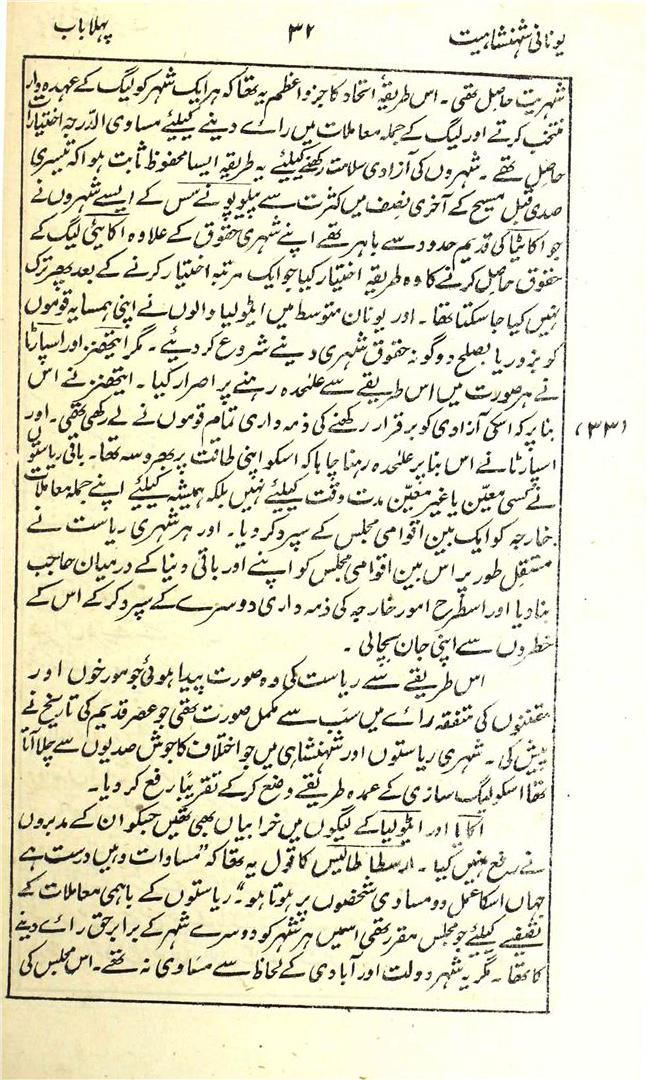 یونانی شہنشاہیت ۳۲ پہلا باب
شہریت حاصل تھی ۔ اس طریقۂ اتحاد کا جزو اعظم یہ تھا کہ ہر ایک شہر کو لیگ کے عہدہ دار
منتخب کرتے اور لیگ کے جملہ معاملات میں رائے دینے کیلئے مساوی الدرجہ اختیارات
حاصل تھے ۔ شہروں کی آزادی سلامت رکھنے کیلئے یہ طریقہ ایسا محفوظ ثابت ہوا کہ تیسری
صدی قبل مسیح کے آخری نصف میں کثرت سے پیلوپونے سس کے ایسے شہروں نے
جو اکائیا کی قدیم حدود سے باہر تھے اپنے شہری حقوق کے علاوہ اکائی لیگ کے
حقوق حاصل کرنے کا وہ طریقہ اختیار کیا جو ایک مرتبہ اختیار کرنے کے بعد پھر ترک
نہیں کیا جا سکتا تھا ۔ اور یونان متوسط میں ایٹولیا والوں نے اپنی ہمسایہ قوموں
کو بزور یا بصلح دوگونہ حقوق شہری دینے شروع کر دیئے ۔ مگر ایتھنز اور اسپارٹا
نے ہر صورت میں اس طریقے سے علٰحدہ رہنے پر اصرار کیا ۔ ایتھنز نے اس
بنا پر کہ اسکی آزادی کو برقرار رکھنے کی ذمہ داری تمام قوموں نے لے رکھی تھی ۔ اور (۳۳)
اسپارٹا نے اس بنا پر علٰحدہ رہنا چاہا کہ اسکو اپنی طاقت پر بھروسہ تھا ۔ باقی ریاستوں
نے کسی معیّن یا غیر معیّن مدت وقت کیلئے نہیں بلکہ ہمیشہ کیلئے اپنے جملہ معاملات
خارجہ کو ایک بین اقوامی مجلس کے سپرد کر دیا ۔ اور ہر شہری ریاست نے
مستقل طور پر اس بین اقوامی مجلس کو اپنے اور باقی دنیا کے درمیان حاجب
بنا دیا اور اسطرح امور خارجہ کی ذمہ داری دوسرے کے سپرد کر کے اس کے
خطروں سے اپنی جان بچالی ۔
اس طریقے سے ریاست کی وہ صورت پیدا ہوئی جو مورخوں اور
مقننوں کی متفقہ رائے میں سب سے مکمل صورت تھی جو عصر قدیم کی تاریخ نے
پیش کی ۔ شہری ریاستوں اور شہنشاہی میں جو اختلاف کا جوش صدیوں سے چلا آتا
تھا اسکو لیگ سازی کے عمدہ طریقے وضع کر کے تقریباً رفع کر دیا ۔
اکایا اور ایٹولیا کے لیگوں میں خرابیاں بھی تھیں جنکو ان کے مدبروں
نے رفع نہیں کیا ۔ ارسطاطالیس کا قول یہ تھا کہ "مساوات وہیں درست ہے
جہاں اسکا عمل دو مساوی شخصوں پر ہوتا ہو" ریاستوں کے باہمی معاملات کے
تصفیے کیلئے جو مجلس مقرر تھی اسمیں ہر شہر کو دوسرے شہر کے برابر حق رائے دینے
کا تھا ۔ مگر یہ شہر دولت اور آبادی کے لحاظ سے مساوی نہ تھے ۔ اس مجلس کی